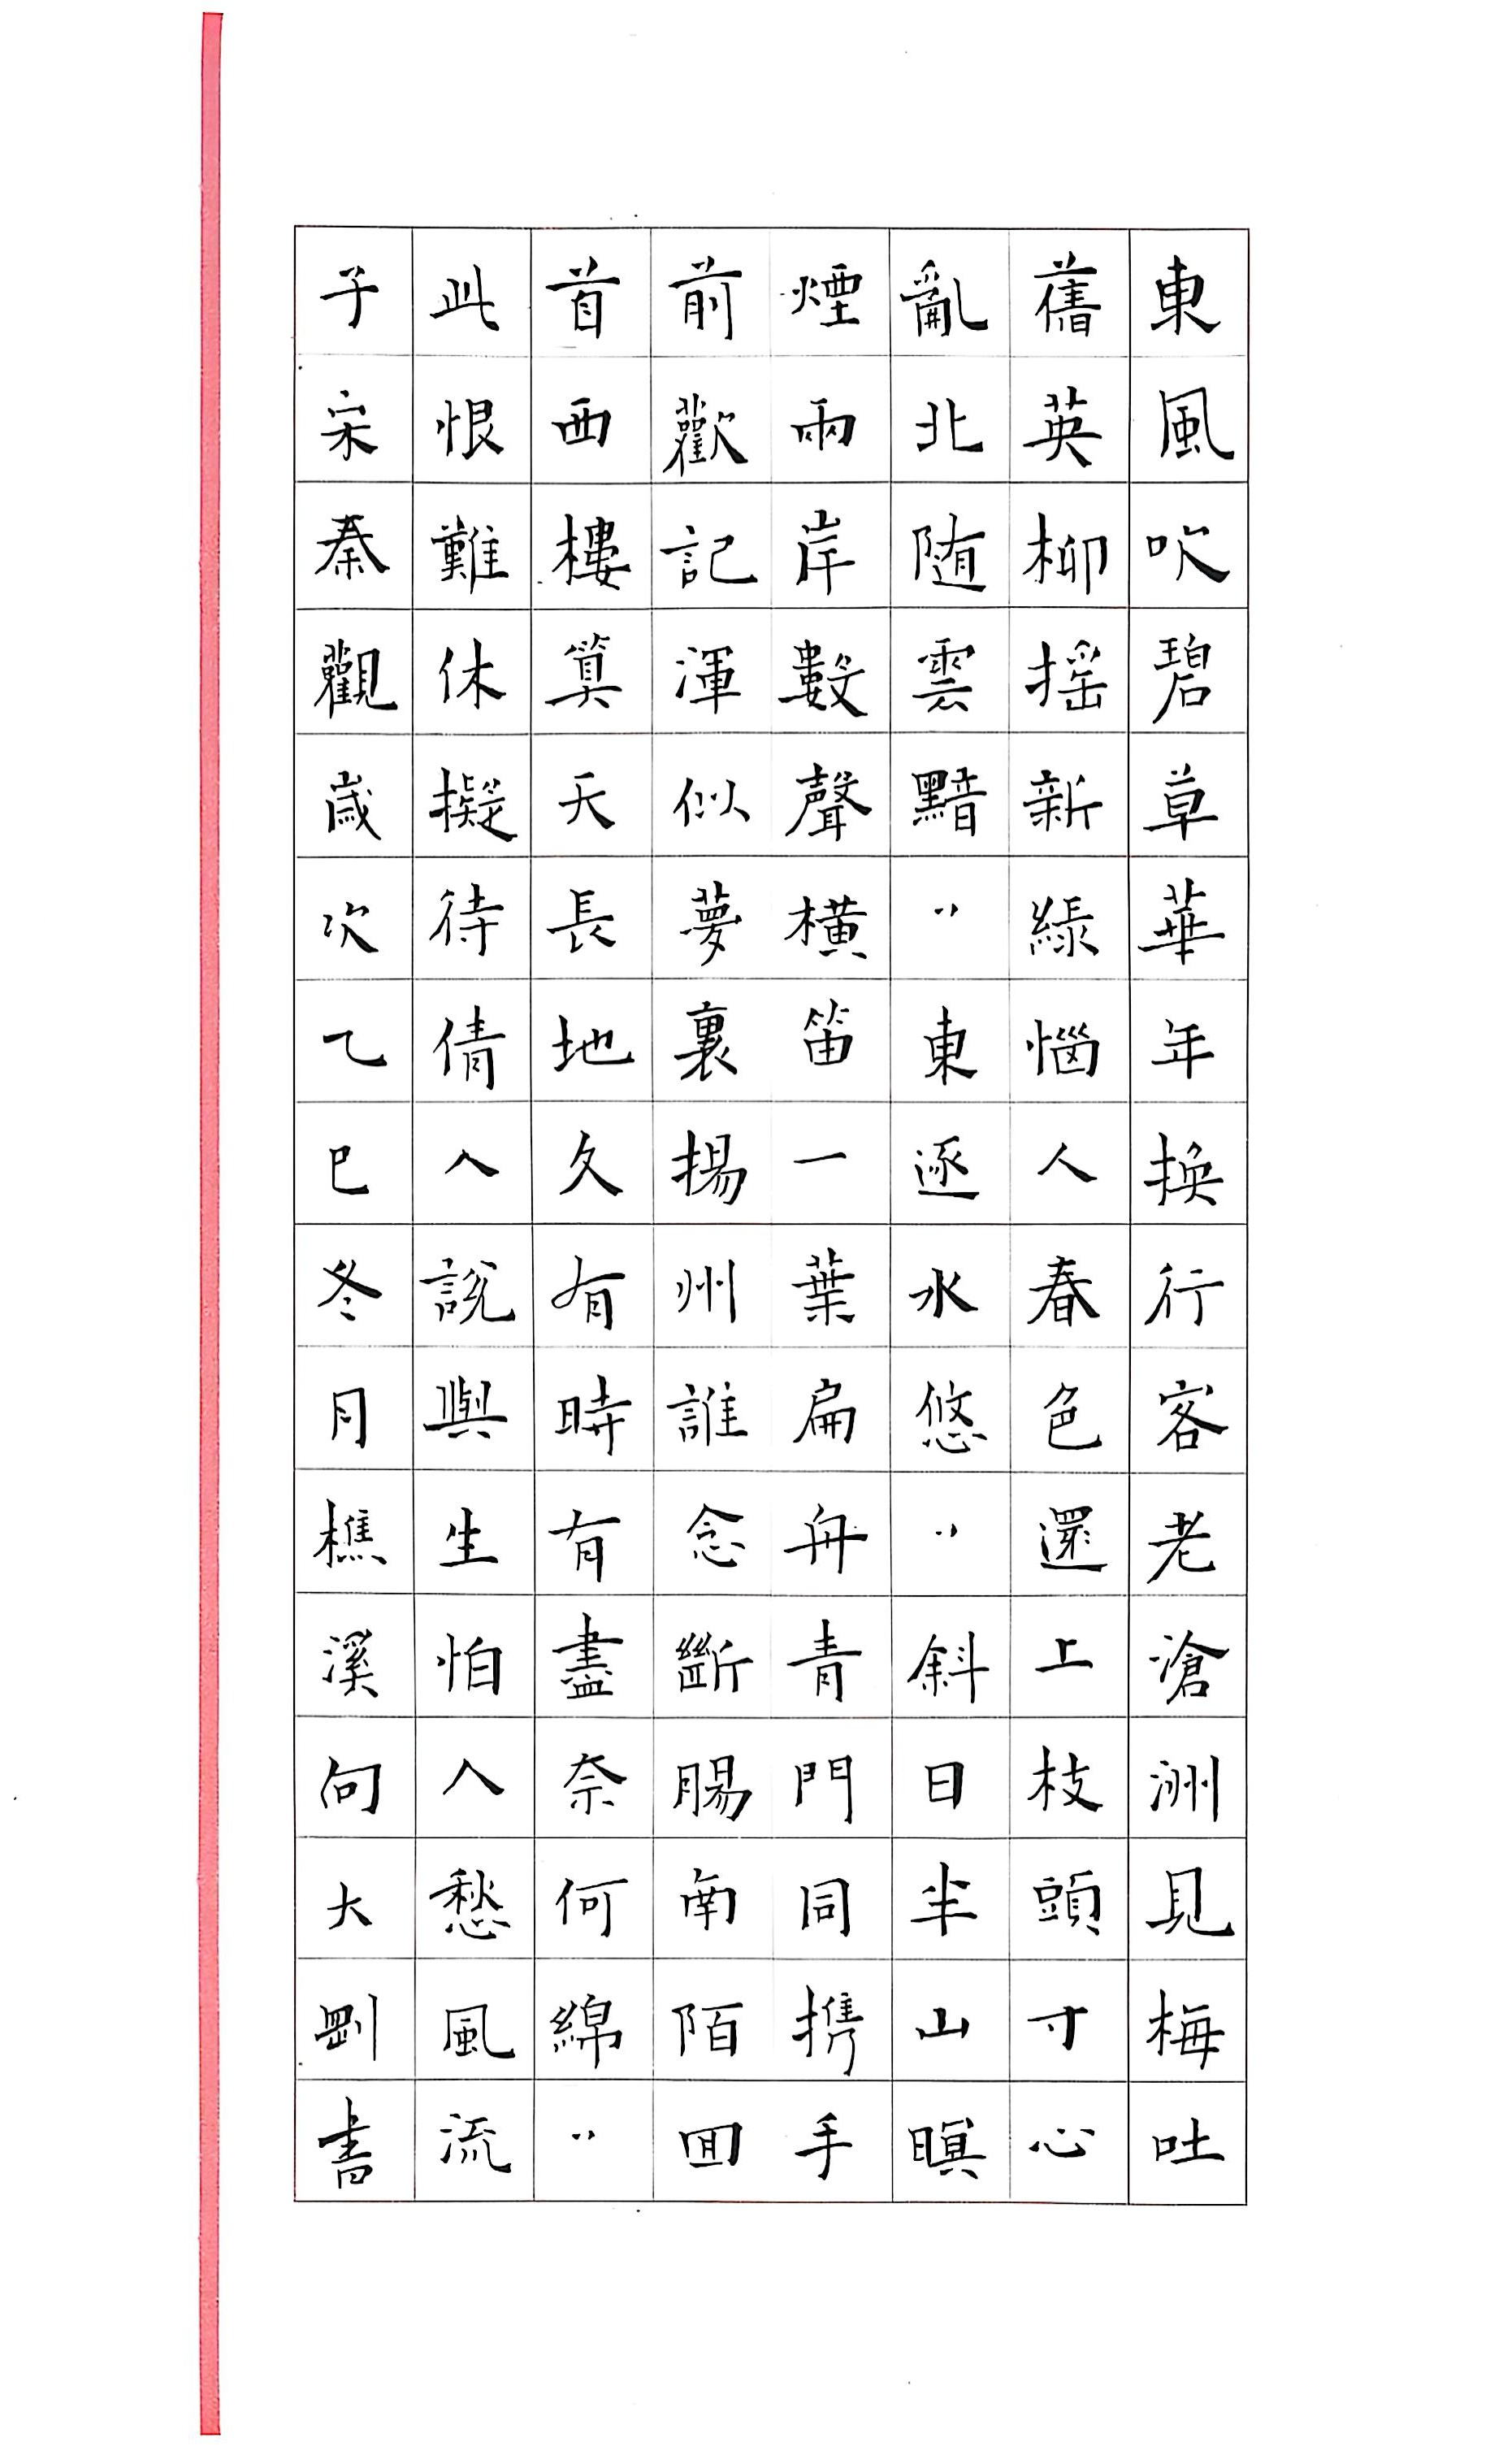 東風吹碧草華年換行客老滄洲見梅吐
舊英柳摇新綠惱人春色還上枝頭寸心
亂北随雲黯〃東逐水悠〃斜日半山暝
煙兩岸數聲橫笛一葉扁舟青門同携手
前歡記渾似夢裏揚州誰念斷腸南陌囬
首西樓算天長地久有時有盡奈何綿〃
此恨難休擬待倩人說與生怕人愁風流
子宋秦觀歲次乙巳冬月樵溪向大剛書